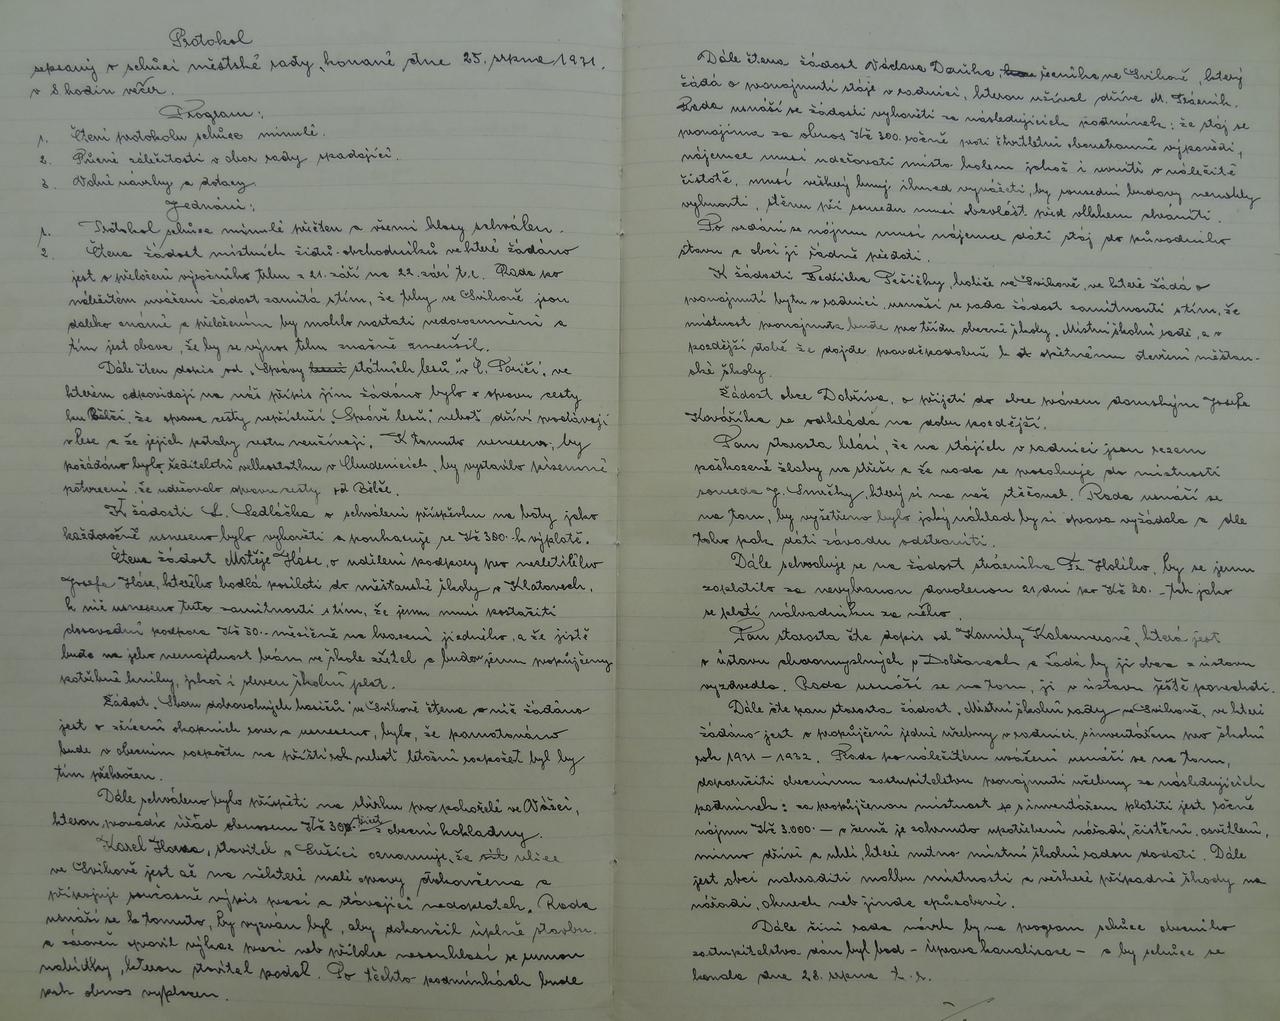 Protokol
sepsaný v schůzi městské rady, konané dne 25. srpna 1931.
v 8 hodin večer.
Program:
1. Čtení protokolu schůze minulé.
2. Různé záležitosti v obor rady spadající.
3. Volné návrhy a dotazy
Jednání:
1. Protokol schůze minulé přečten a všemi hlasy schválen.
2. Čtena žádost místních židů-obchodníků ve které žádáno
jest o přeložení výročního trhu z 21. září na 22. září t.r. Rada po
náležitém uvážení žádost zamítá s tím, že trhy ve Švihově jsou
daleko známé a přeložením by mohlo nastati nedorozumění a
tím jest obava, že by se výnos trhu značně zmenšil.
Dále čten dopis od "Správy státních lesů" v Č. Poříčí, ve
kterém odpovídají na náš přípis jím žádáno bylo o opravu cesty
ku Bělči, že oprava cesty nepřísluší "Správě lesů", neboť dříví prodávají
v lese a že jejich potahy cestu neužívají. K tomuto usneseno, by
požádáno bylo ředitelství velkostatku v Chudenicích, by vystavilo písemné
potvrzení, že udržovalo opravu cesty od Bělče.
K žádosti L. Sedláčka o schválení příspěvku na boty jako
každoročně usneseno bylo vyhověti a poukazuje se Kč 300.- k výplatě.
Čtena žádost Matěje Háse, o udělení podpory pro nezletilého
Josefa Háse, kterého hodlá posílati do měšťanské školy v Klatovech,
k níž usneseno tuto zamítnouti s tím, že jemu musí postačiti
dosavadní podpora Kč 50.- měsíčně na hocha jiedného, a že jistě
bude na jeho nemajetnost brán ve škole zřetel a budou jemu propůjčeny
potřebné knihy, jakož i sleven školní plat.
Žádost "Sboru dobrovolných hasičů" ve Švihově čtena a níž žádáno
jest o zřízení okapních rour a usneseno, bylo, že pamatováno
bude v obecním rozpočtu na příští rok neboť letošní rozpočet byl by
tím překročen.
Dále schváleno bylo přispěti na sbírku pro pohořelé ve
kterou provádí úřad obnosem Kč 30.- třicet z obecní pokladny.
Karel Houra, stavitel v Sušici oznamuje, že ulice
ve Švihově jest až na některé malé opravy dokončena a
připojuje současně výpis prací a stávající nedoplatek. Rada
usnáší se k tomuto, by vyzván byl, aby dokončil úplně stavbu
a zároveň opravil výkaz prací neb příloha nesouhlasí se sumou
nabídky, kterou stavitel podal. Po těchto podmínkách bude
pak obnos vyplacen.
Dále čtena žádost Václava Daňka, řezníka ve Švihově, který
žádá o pronajmutí stáje v radnici, kterou užíval dříve M.
Rada usnáší se žádosti vyhověti za následujících podmínek: že stáj se
pronajímá za obnos Kč 300. ročně proti čtvrtletní oboustranné výpovědi,
nájemce musí udržovati místo kolem jakož i uvnitř v náležité
čistotě, musí veškerý hnůj ihned vyvážeti, by sousední budovy nemohly
vlhnouti, stěnu při sousedu musí obzvlášť před vlhkem chrániti.
Po vzdání se nájmu musí nájemce dáti stáj do původního
stavu a obci ji řádně předati.
K žádosti Bedřicha Pešičky, holiče ve Švihově, ve které žádá o
pronajmutí bytu v radnici, usnáší se rada žádost zamítnouti s tím, že
místnost pronajmuta bude pro třídu obecné školy, Místní školní radě, a v
pozdější době že dojde pravděpodobně k opětnému otevření měšťan-
ské školy.
Žádost obce Dobříva, o přijetí do obce právem domovským Josefa
Kováříka se odkládá na dobu pozdější.
Pan starosta hlásí, že na stájích v radnici jsou rezem
poškozené žlaby na střeše a že voda se prosakuje do místností
souseda J. Smrčky, který si na nás stěžoval. Rada usnáší se
na tom, by vyšetřeno bylo jaký náklad by si oprava vyžádala a dle
toho pak dáti závadu odstraniti.
Dále schvaluje se na žádost strážníka Fr. Holého, by se jemu
zaplatilo za nevybranou dovolenou 21 dní po Kč 20.- tak jako
se platí náhradníku za něho.
Pan starosta čte dopis od Kamily Kalounerové, která jest
v ústavu choromyslných v Dobřanech a žádá by ji obec z ústavu
vyzvedla. Rada usnáší se na tom, ji v ústavu ještě ponechati.
Dále čte pan starosta žádost "Místní školní rady" ve Švihově, ve které
žádáno jest o propůjčení jedné učebny v radnici, s inventářem pro školní
rok 1931 - 1932. Rada po náležitém uvážení usnáší se na tom,
doporučiti obecnímu zastupitelstvu pronajmouti učebny za následujících
podmínek: za propůjčenou místnost se s inventářem platiti jest ročně
nájmu Kč 3.000.- v čemž je zahrnuto upotřebení nářadí, čistění, osvětlení,
mimo dříví a uhlí, které nutno místní školní radou dodati. Dále
jest obci nahraditi malbu místnosti a veškeré případné škody na
nářadí, oknech neb jinde způsobené.
Dále činí rada návrh by na program schůze obecního
zastupitelstva dán byl bod - Úprava kanalisace - a by schůze se
konala dne 28. srpna t. r.